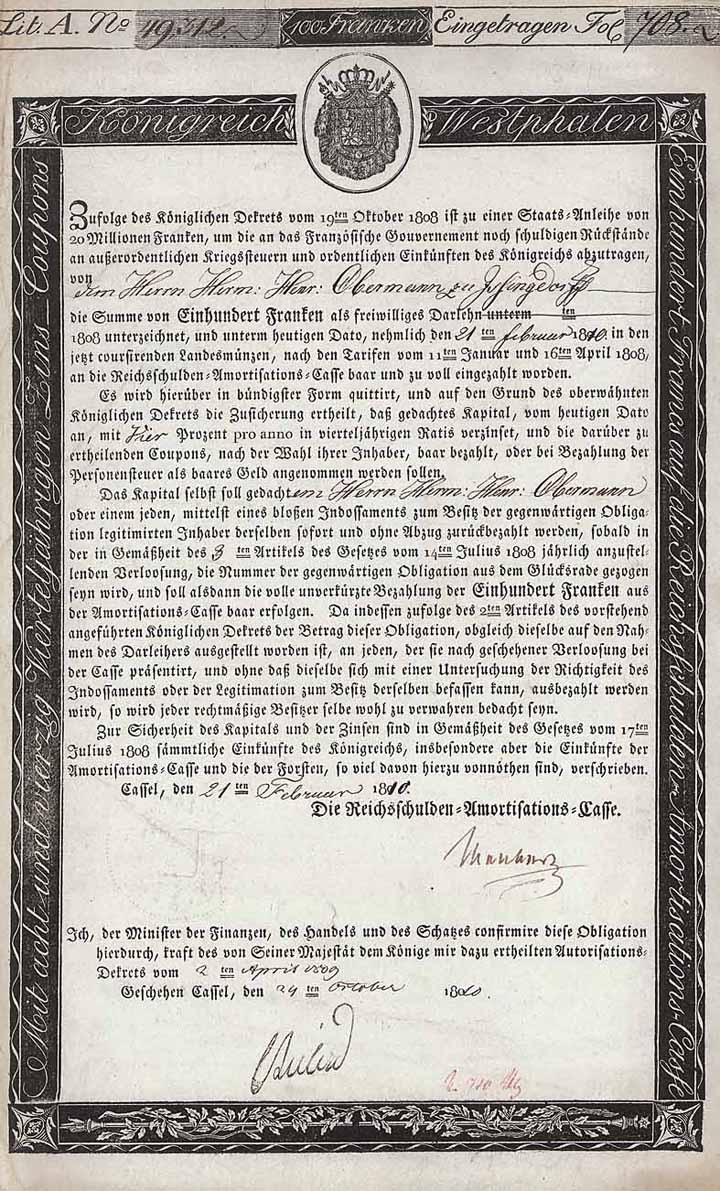 Lit. A. No 19312. 100 Franken Eingetragen Fol 708.
Königreich Westphalen
Mit acht und vierzig Vierteljährigen Zins Coupons
Einhundert Francs auf die Reichsschulden-Amortisations-Casse
Zufolge des Königlichen Dekrets vom 19ten Oktober 1808 ist zu einer Staats-Anleihe von
20 Millionen Franken, um die an das Französische Gouvernement noch schuldigen Rückstände
an außerordentlichen Kriegssteuern und ordentlichen Einkünften des Königreichs abzutragen,
von dem Herrn Herm: Henr: Obermann zu
die Summe von Einhundert Franken als freiwilliges Darlehn unterm ten
1808 unterzeichnet, und unterm heutigen Dato, nehmlich den 21 ten februar 1810. in den
jetzt coursirenden Landesmünzen, nach den Tarifen vom 11ten Januar und 16ten April 1808,
an die Reichsschulden-Amortisations-Casse baar und zu voll eingezahlt worden.
Es wird hierüber in bündigster Form quittirt, und auf den Grund des oberwähnten
Königlichen Dekrets die Zusicherung ertheilt, daß gedachtes Kapital, vom heutigen Dato
an, mit Vier Prozent pro anno in vierteljährigen Ratis verzinset, und die darüber zu
ertheilenden Coupons, nach der Wahl ihrer Inhaber, baar bezahlt, oder bei Bezahlung der
Personensteuer als baares Geld angenommen werden sollen.
Das Kapital selbst soll gedachtem Herrn Herm: Henr: Obermann
oder einem jeden, mittelst eines bloßen Indossaments zum Besitz der gegenwärtigen Obliga-
tion legitimirten Inhaber derselben sofort und ohne Abzug zurückbezahlt werden, sobald in
der in Gemäßheit des 3 ten Artikels des Gesetzes vom 14ten Julius 1808 jährlich anzustel-
lenden Verloosung, die Nummer der gegenwärtigen Obligation aus dem Glücksrade gezogen
seyn wird, und soll alsdann die volle unverkürzte Bezahlung der Einhundert Franken aus
der Amortisations-Casse baar erfolgen. Da indessen zufolge des 2ten Artikels des vorstehend
angeführten Königlichen Dekrets der Betrag dieser Obligation, obgleich dieselbe auf den Nah-
men des Darleihers ausgestellt worden ist, an jeden, der sie nach geschehener Verloosung bei
der Casse präsentirt, und ohne daß dieselbe sich mit einer Untersuchung der Richtigkeit des
Indossaments oder der Legitimation zum Besitz derselben befassen kann, ausbezahlt werden
wird, so wird jeder rechtmäßige Besitzer selbe wohl zu verwahren bedacht seyn.
Zur Sicherheit des Kapitals und der Zinsen sind in Gemäßheit des Gesetzes vom 17ten
Julius 1808 sämmtliche Einkünfte des Königreichs, insbesondere aber die Einkünfte der
Amortisations-Casse und die der Forsten, so viel davon hierzu vonnöthen sind, verschrieben.
Cassel, den 21 ten Februar 1810.
Die Reichsschulden-Amortisations-Casse.
Ich, der Minister der Finanzen, des Handels und des Schatzes confirmire diese Obligation
hierdurch, kraft des von Seiner Majestät dem Könige mir dazu ertheilten Autorisations-
Dekrets vom 2 ten April 1809
Geschehen Cassel, den 24 ten October 1810.